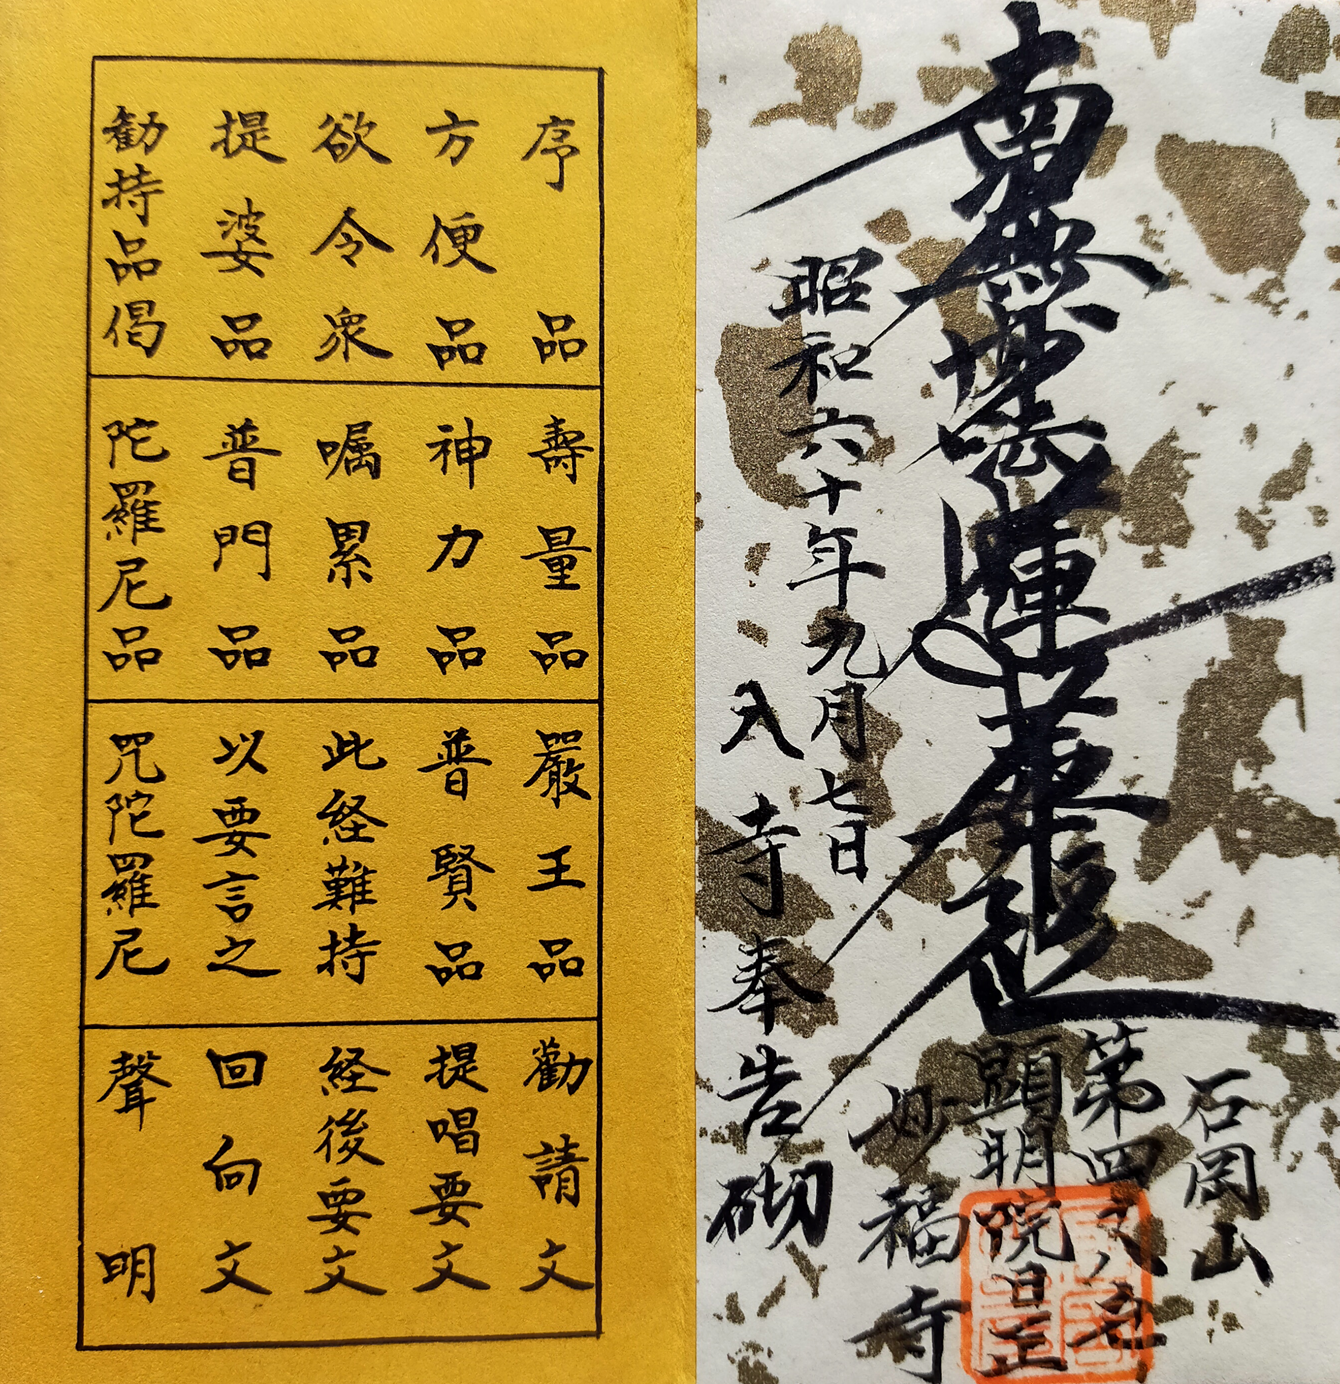 南無妙法蓮華経
石岡山
第四八主
顕明院日
妙福寺
昭和六十年九月七日
入寺奉告砌
序品
方便品
欲令衆
提婆品
勧持品偈
壽量品
神力品
嘱累品
普門品
陀羅尼品
嚴王品
普賢品
此経難持
以要言之
咒陀羅尼
勸請文
提唱要文
経後要文
回向文
聲明